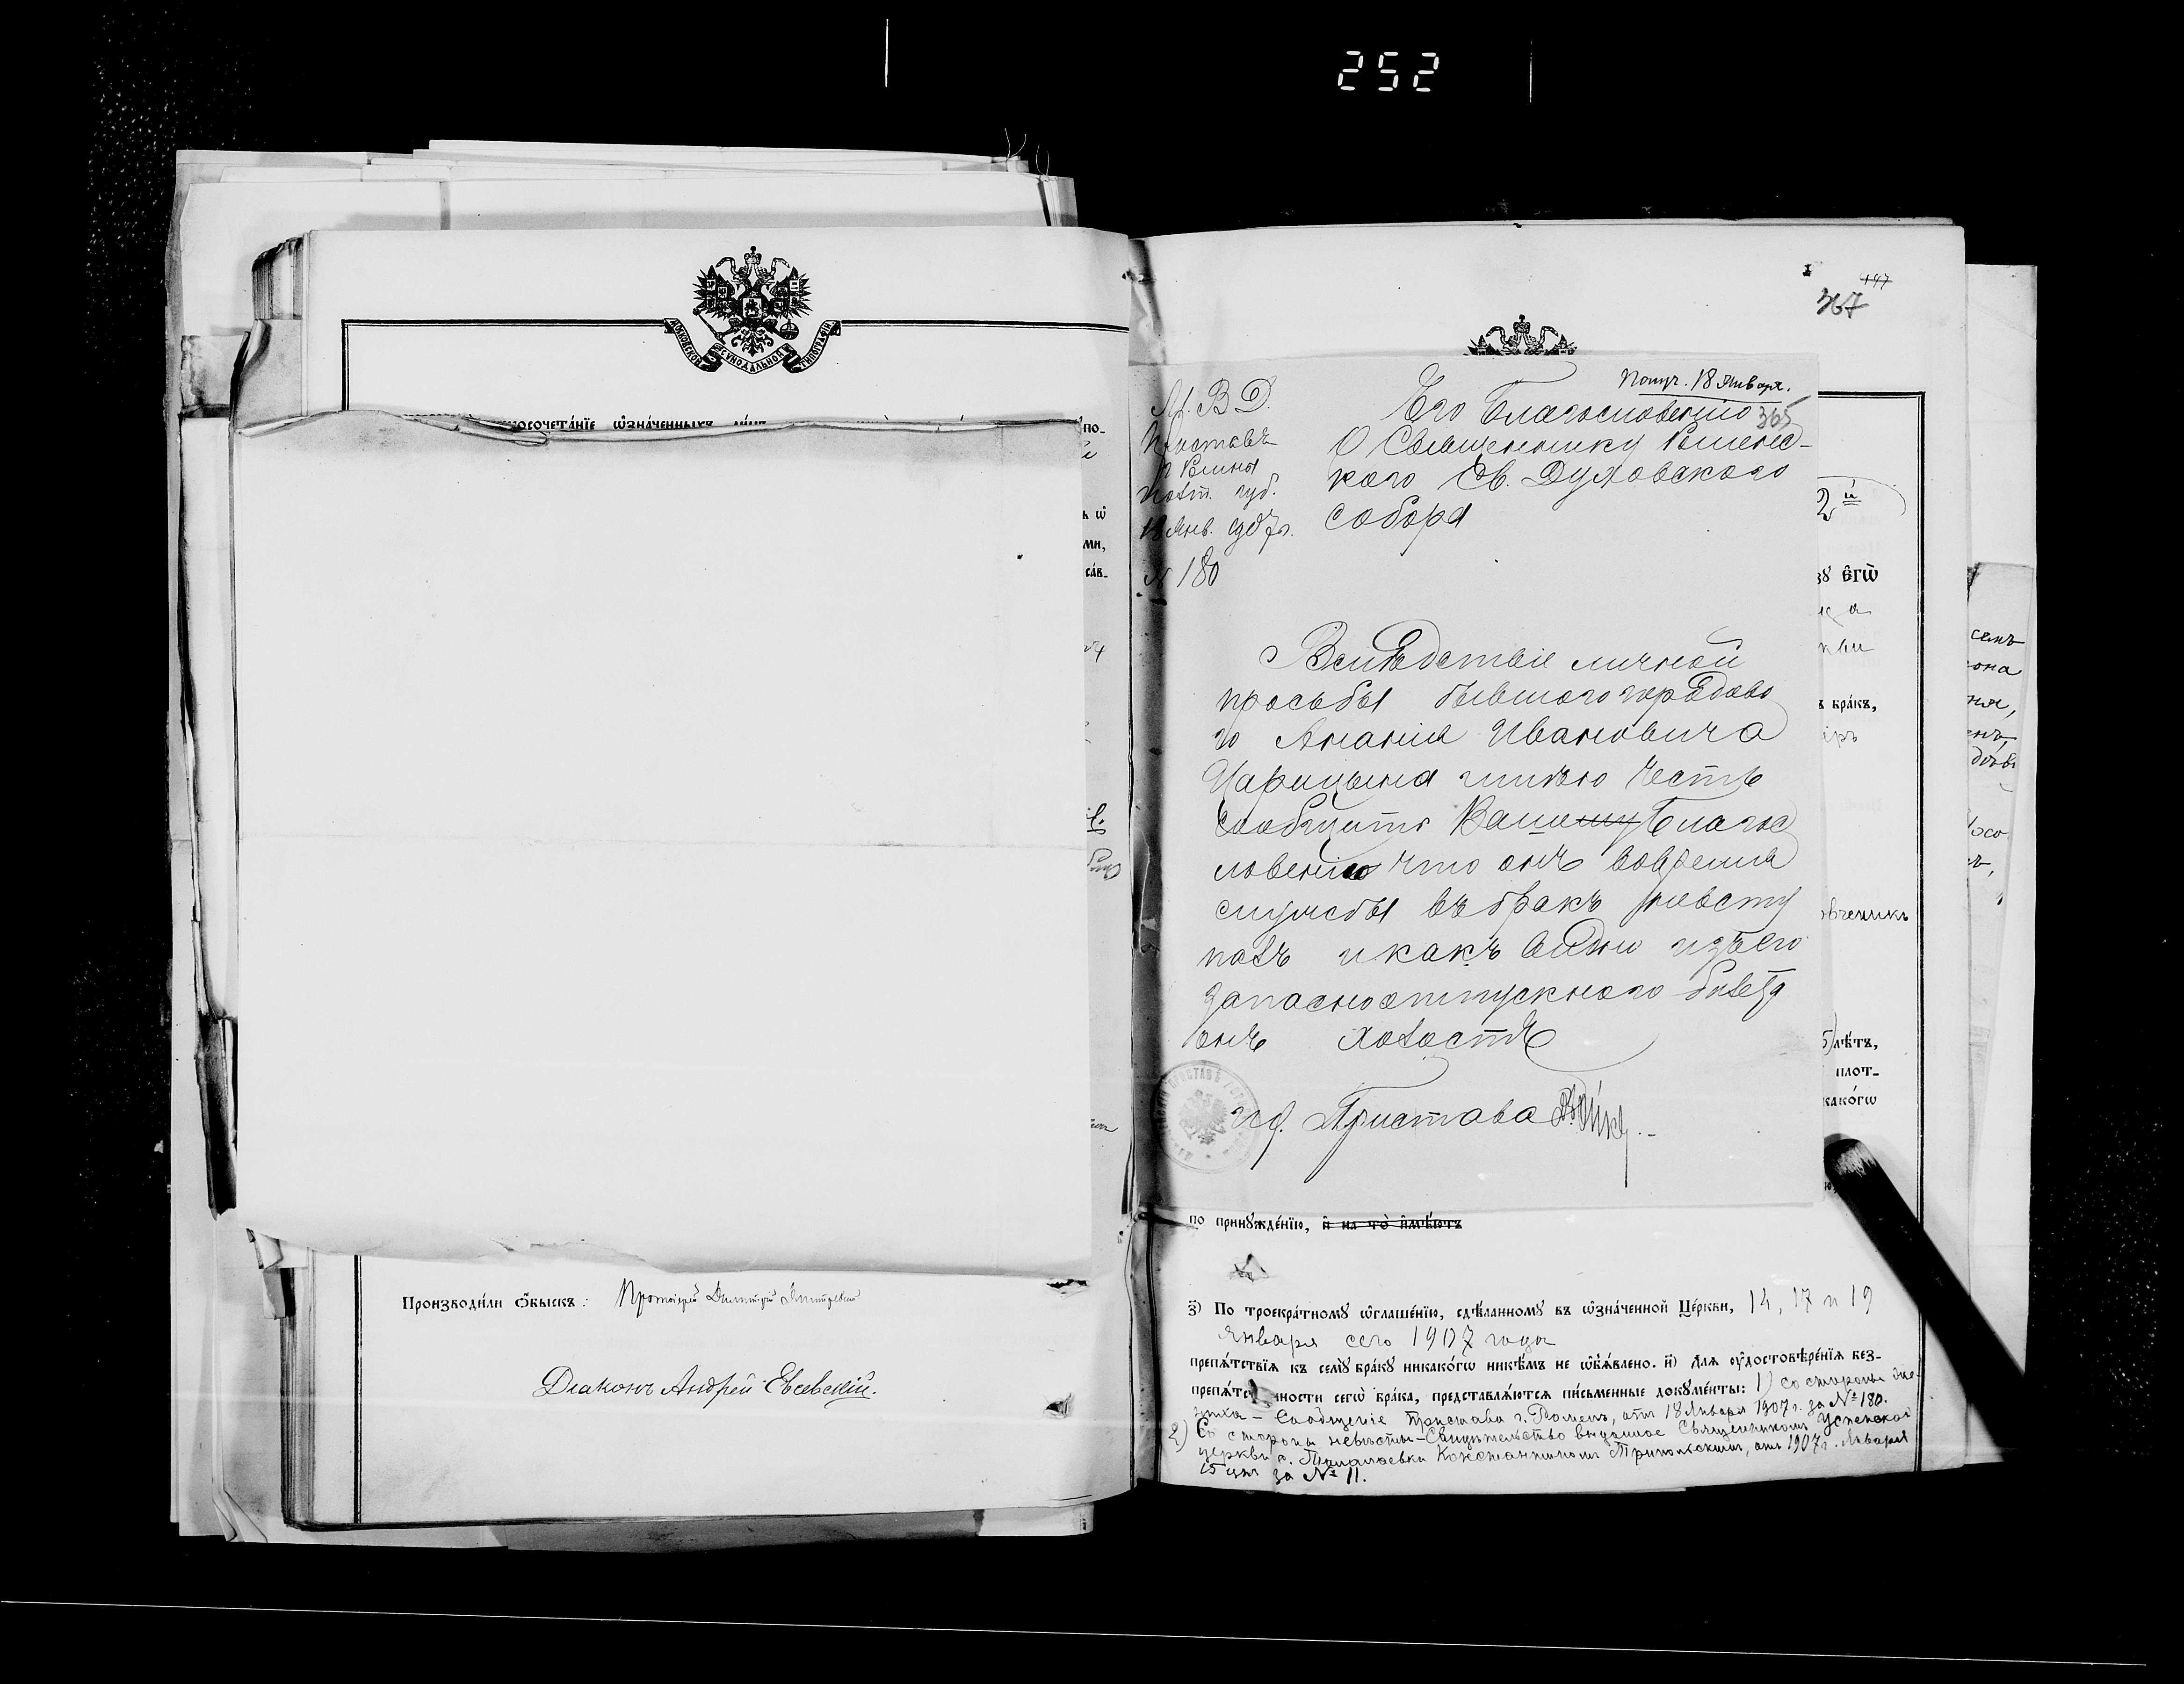 252
МОСКОВСКОЙ СѴНОДАЛЬНОЙ ТИПОГРАФІИ
Произво́дили ѻ҆́быскъ: Протоіерей Димитрій
Діаконъ Андрей Евсевскій.
197
367
Получ. 18 Января.
365
М. В. Д.
Приставъ
г. Ромна
Полт. губ.
18 Янв. 1907 г.
№ 180
Его Благословенію
О Священнику Роменс-
каго Св. Духовскаго
собора
Вслѣдствіе личной
просьбы бывшаго городово
го Ананія Ивановича
Царицына имѣю честь
сообщить Вашему Благос
ловенію что онъ вовремя
службы въ бракъ невсту
палъ и какъ видно изъ его
запасноотпускного билета
онъ холостъ
И. д. Пристава
2й
зꙋ є҆гѡ̀
въ бра́къ,
лѣ́тъ,
плот-
како́гѡ
по принꙋжде́нїю, и҆ на то̀ и҆мѣ́ютъ
з҃) По троекра́тномꙋ ѡ҆глаше́нїю, сдѣ́ланномꙋ въ ѡ҆зна́ченной Це́ркви, 14, 17 и 19
Января сего 1907 года
препѧ́тствїѧ къ семꙋ̀ бра́кꙋ никако́гѡ никѣ́мъ не ѡ҆б̾ѧ́влено. и҃) Для ᲂу҆достовѣре́нїѧ без-
препѧ́тственности сегѡ̀ бра́ка, представлѧ́ютсѧ пи́сьменные докꙋме́нты: 1) со стороны же-
ниха – Сообщеніе Пристава г. Ромень, отъ 18 Января 1907 г. за № 180.
2) Со стороны невѣсты – Свидѣтельство выданное Священникомъ Успенской
церкви с. Константиномъ Трипольскимъ, отъ 1907 г. Января
15 дня за № 11.